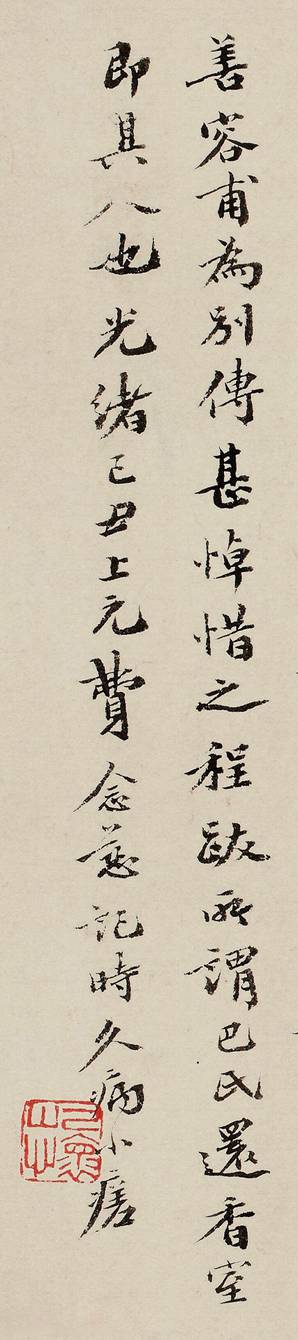 善容甫為別傳甚悼惜之程跋所謂巴氏還香室
即其人也光緒己丑上元費念慈記時久病小瘥